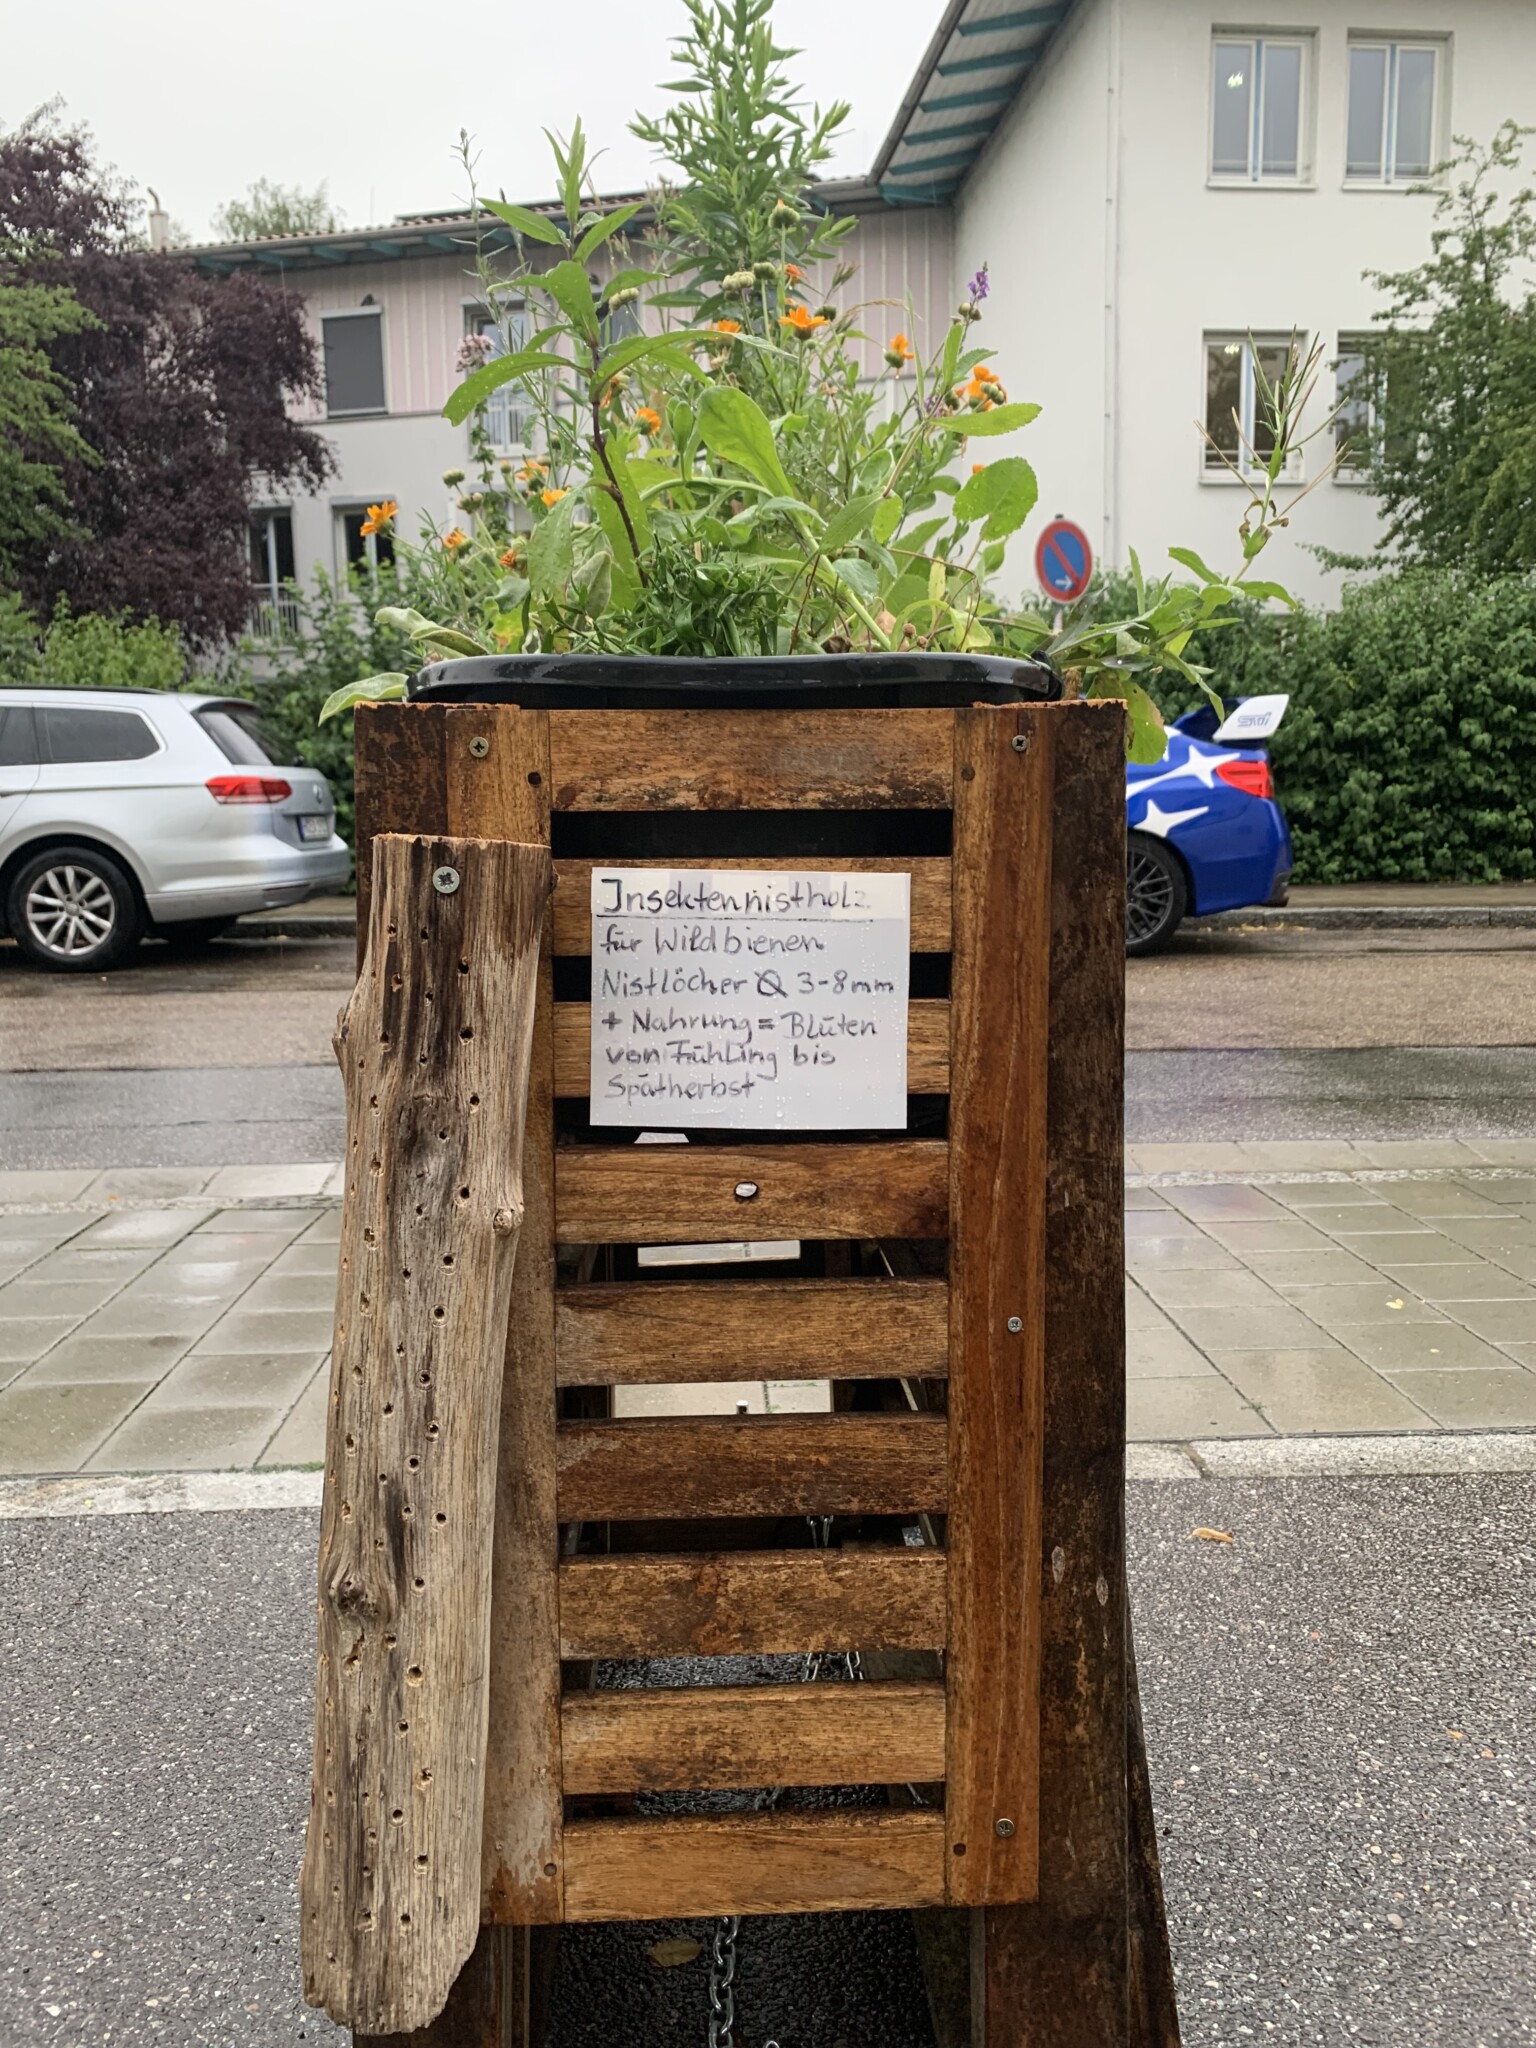 Insektennistholz
für Wildbienen
Nistlöcher Ø 3-8mm
+ Nahrung = Blüten
von Frühling bis
Spätherbst
STI